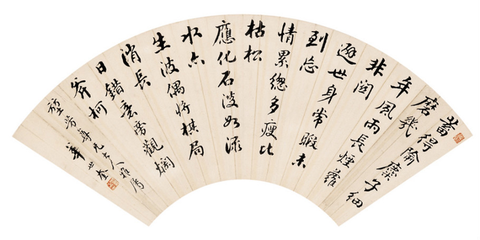 蓄得隃麋子細
磨幾
年風雨長煙蘿
非關
遯世身常暇未
到忘
情累總多瘦比
枯松
應化石淡如
水
生波偶將棋局
消長
日錯旁觀爛
斧柯
芳尊兄大人雅屬
華世奎